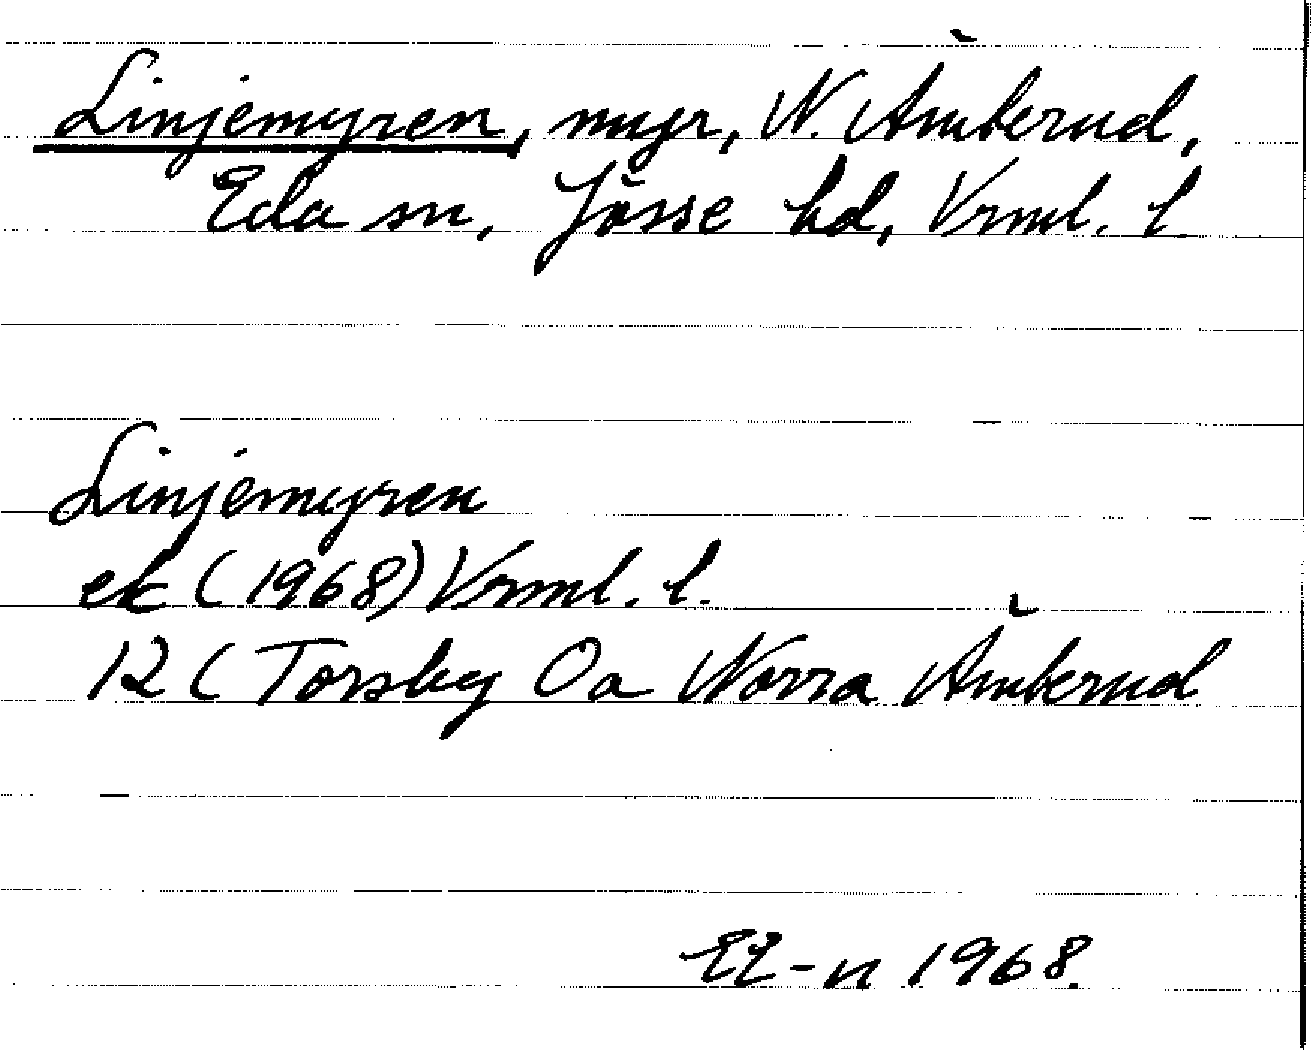 Linjemyren, myr, N. Åmberud,
Eda sn, Jösse hd, Vrml. l.
Linjemyren
ek (1968) Vrml. l.
12 ( Torsby Oa Norra Åmberud
EL-n 1968.